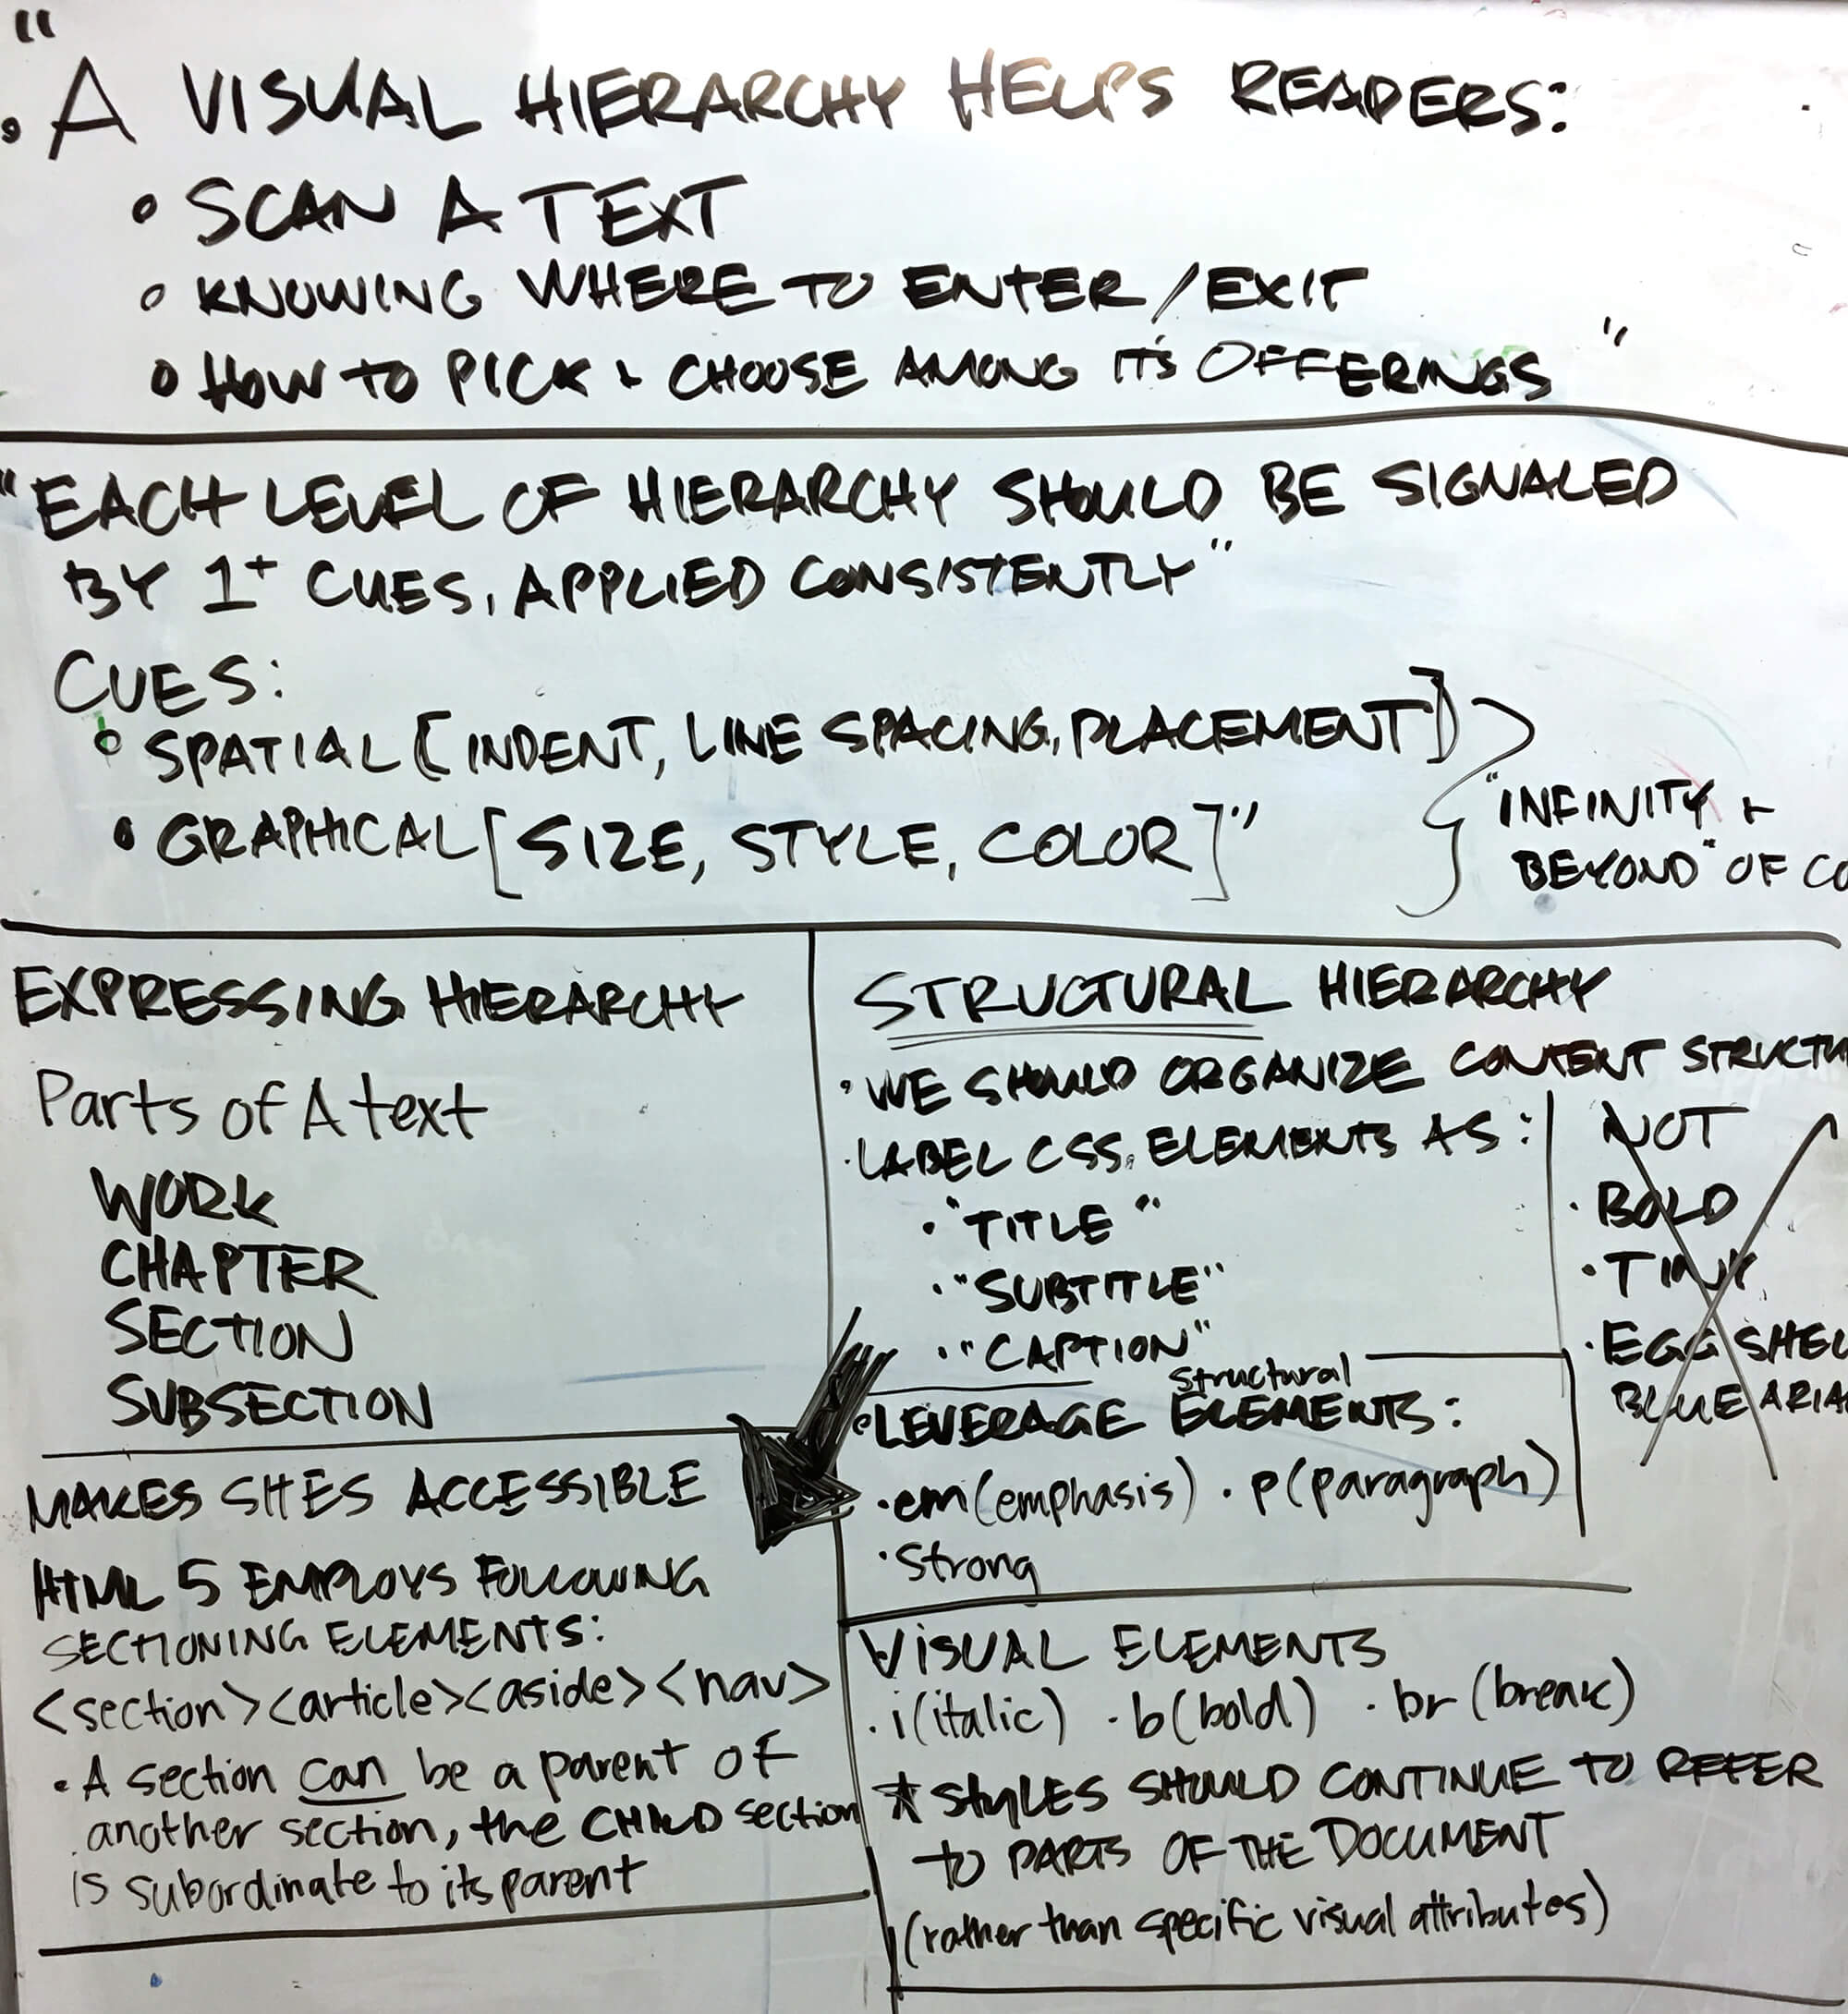 "
• A VISUAL HIERARCHY HELPS READERS:
• SCAN A TEXT
• KNOWING WHERE TO ENTER/EXIT
• HOW TO PICK + CHOOSE AMONG IT'S OFFERINGS "
"EACH LEVEL OF HIERARCHY SHOULD BE SIGNALED
BY 1+ CUES, APPLIED CONSISTENTLY"
CUES:
• SPATIAL [INDENT, LINE SPACING, PLACEMENT]
• GRAPHICAL [SIZE, STYLE, COLOR]"
"INFINITY +
BEYOND" OF CO
EXPRESSING HIERARCHY
Parts of A text
WORK
CHAPTER
SECTION
SUBSECTION
MAKES SITES ACCESSIBLE
HTML 5 EMPLOYS FOLLOWING
SECTIONING ELEMENTS:
<section><article><aside><nav>
• A section can be a parent of
another section, the CHILD section
is subordinate to its parent
STRUCTURAL HIERARCHY
• WE SHOULD ORGANIZE CONTENT STRUCTU
• LABEL CSS ELEMENTS AS:
• "TITLE"
• "SUBTITLE"
• "CAPTION"
NOT
• BOLD
• TINY
• EGG SHEL
BLUE ARIA
Structural
• LEVERAGE ELEMENTS:
• em (emphasis) • p (paragraph)
• Strong
VISUAL ELEMENTS
• i (italic) • b (bold) • br (break)
* STYLES SHOULD CONTINUE TO REFER
TO PARTS OF THE DOCUMENT
(rather than specific visual attributes)